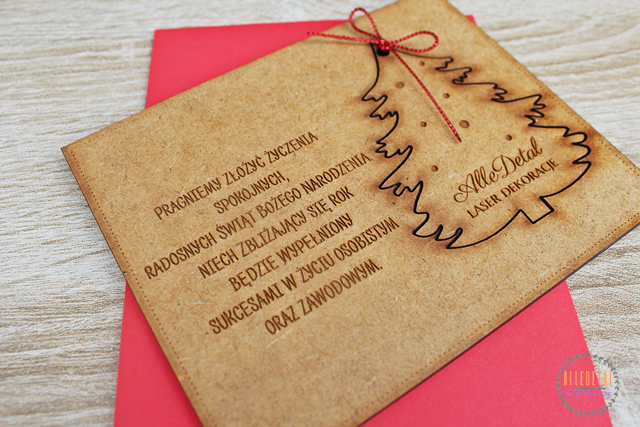 PRAGNIEMY ZŁOŻYĆ ŻYCZENIA
SPOKOJNYCH,
RADOSNYCH ŚWIĄT BOŻEGO NARODZENIA.
NIECH ZBLIŻAJĄCY SIĘ ROK
BĘDZIE WYPEŁNIONY
SUKCESAMI W ŻYCIU OSOBISTYM
ORAZ ZAWODOWYM.
AlleDetal
LASER DEKORACJE